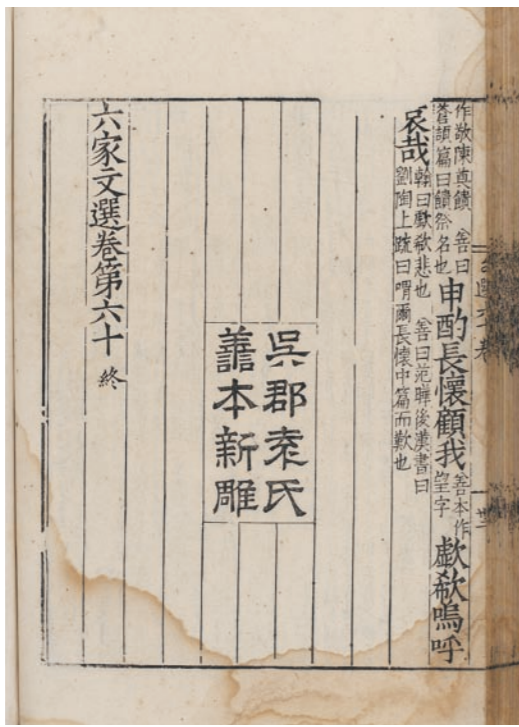 作敬陳奠饋 善曰
蒼頡篇曰饋祭名也
申酌長懷顧我
善本作
望字
歔欷嗚呼
哀哉
翰曰歔欷悲也 善曰范曄後漢書曰
劉陶上疏曰喟爾長懷中篇而歎也
吳郡袁氏
善本新雕
六家文選卷第六十 終